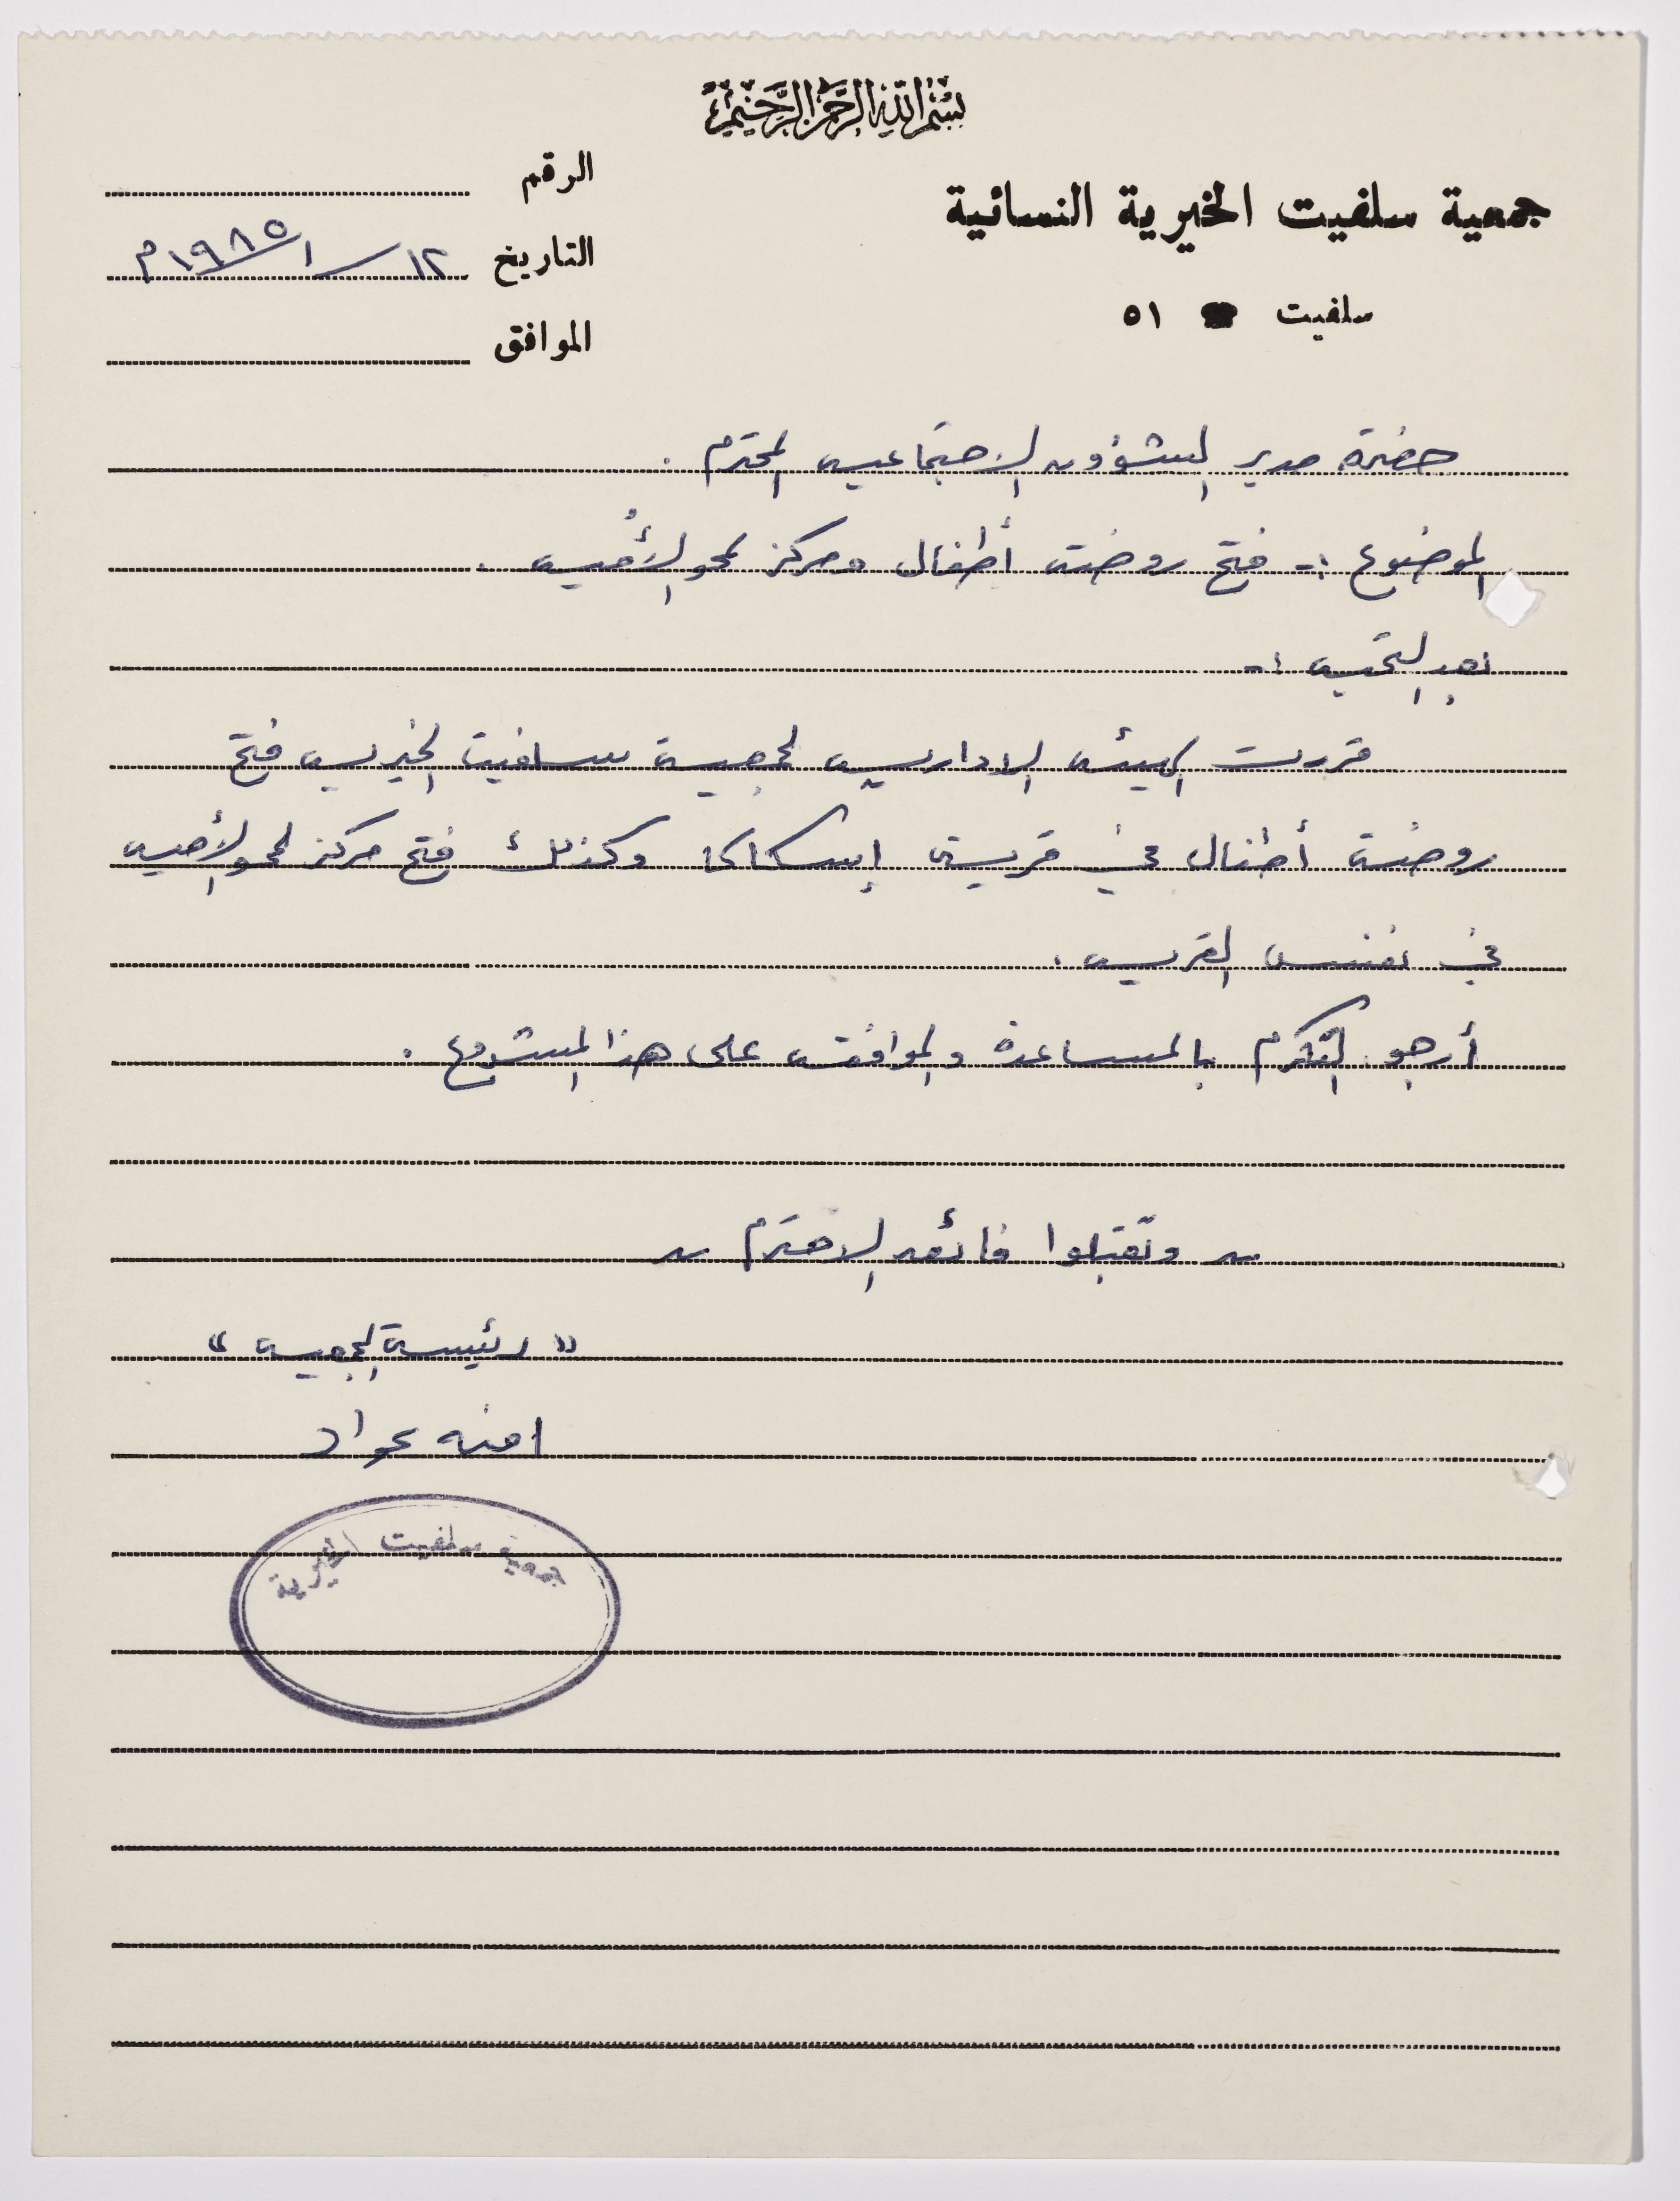 بسم الله الرحمن الرحيم
جمعية سلفيت الخيرية النسائية
سلفيت ☎ ٥١
الرقم
التاريخ ١٢/١/١٩٨٥م
الموافق
حضرة مدير الشؤون الاجتماعيه المحترم .
الموضوع :- فتح روضة أطفال ومركز لمحو الأُميه .
بعد التحيه :-
قررت الهيئه الاداريه لجمعية سلفيت الخيريه فتح
روضة أطفال في قرية إسكاكا وكذلك فتح مركز لمحو الأميه
في نفس القريه .
أرجو التكرم بالمساعدة والموافقه على هذا المشروع .
وتقبلوا فائق الاحترام
" رئيسة الجمعيه "
امنه عواد
جمعية سلفيت الخيرية